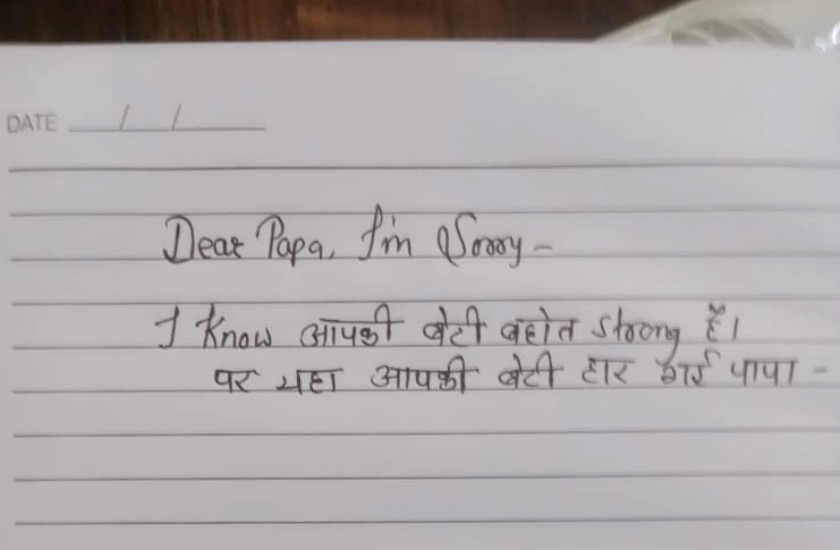 DATE / /
Dear Papa, I'm Sorry -
I Know आपकी बेटी बहोत strong है।
पर यहा आपकी बेटी हार गई पापा -